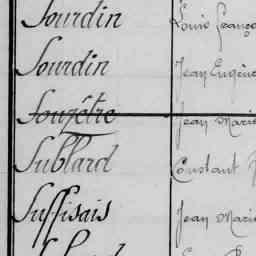 Sourdin Louis Franço
Sourdin Jean Eugène
Souzêtre Jean Marie
Sublard Constant
Suffisais Jean Marie